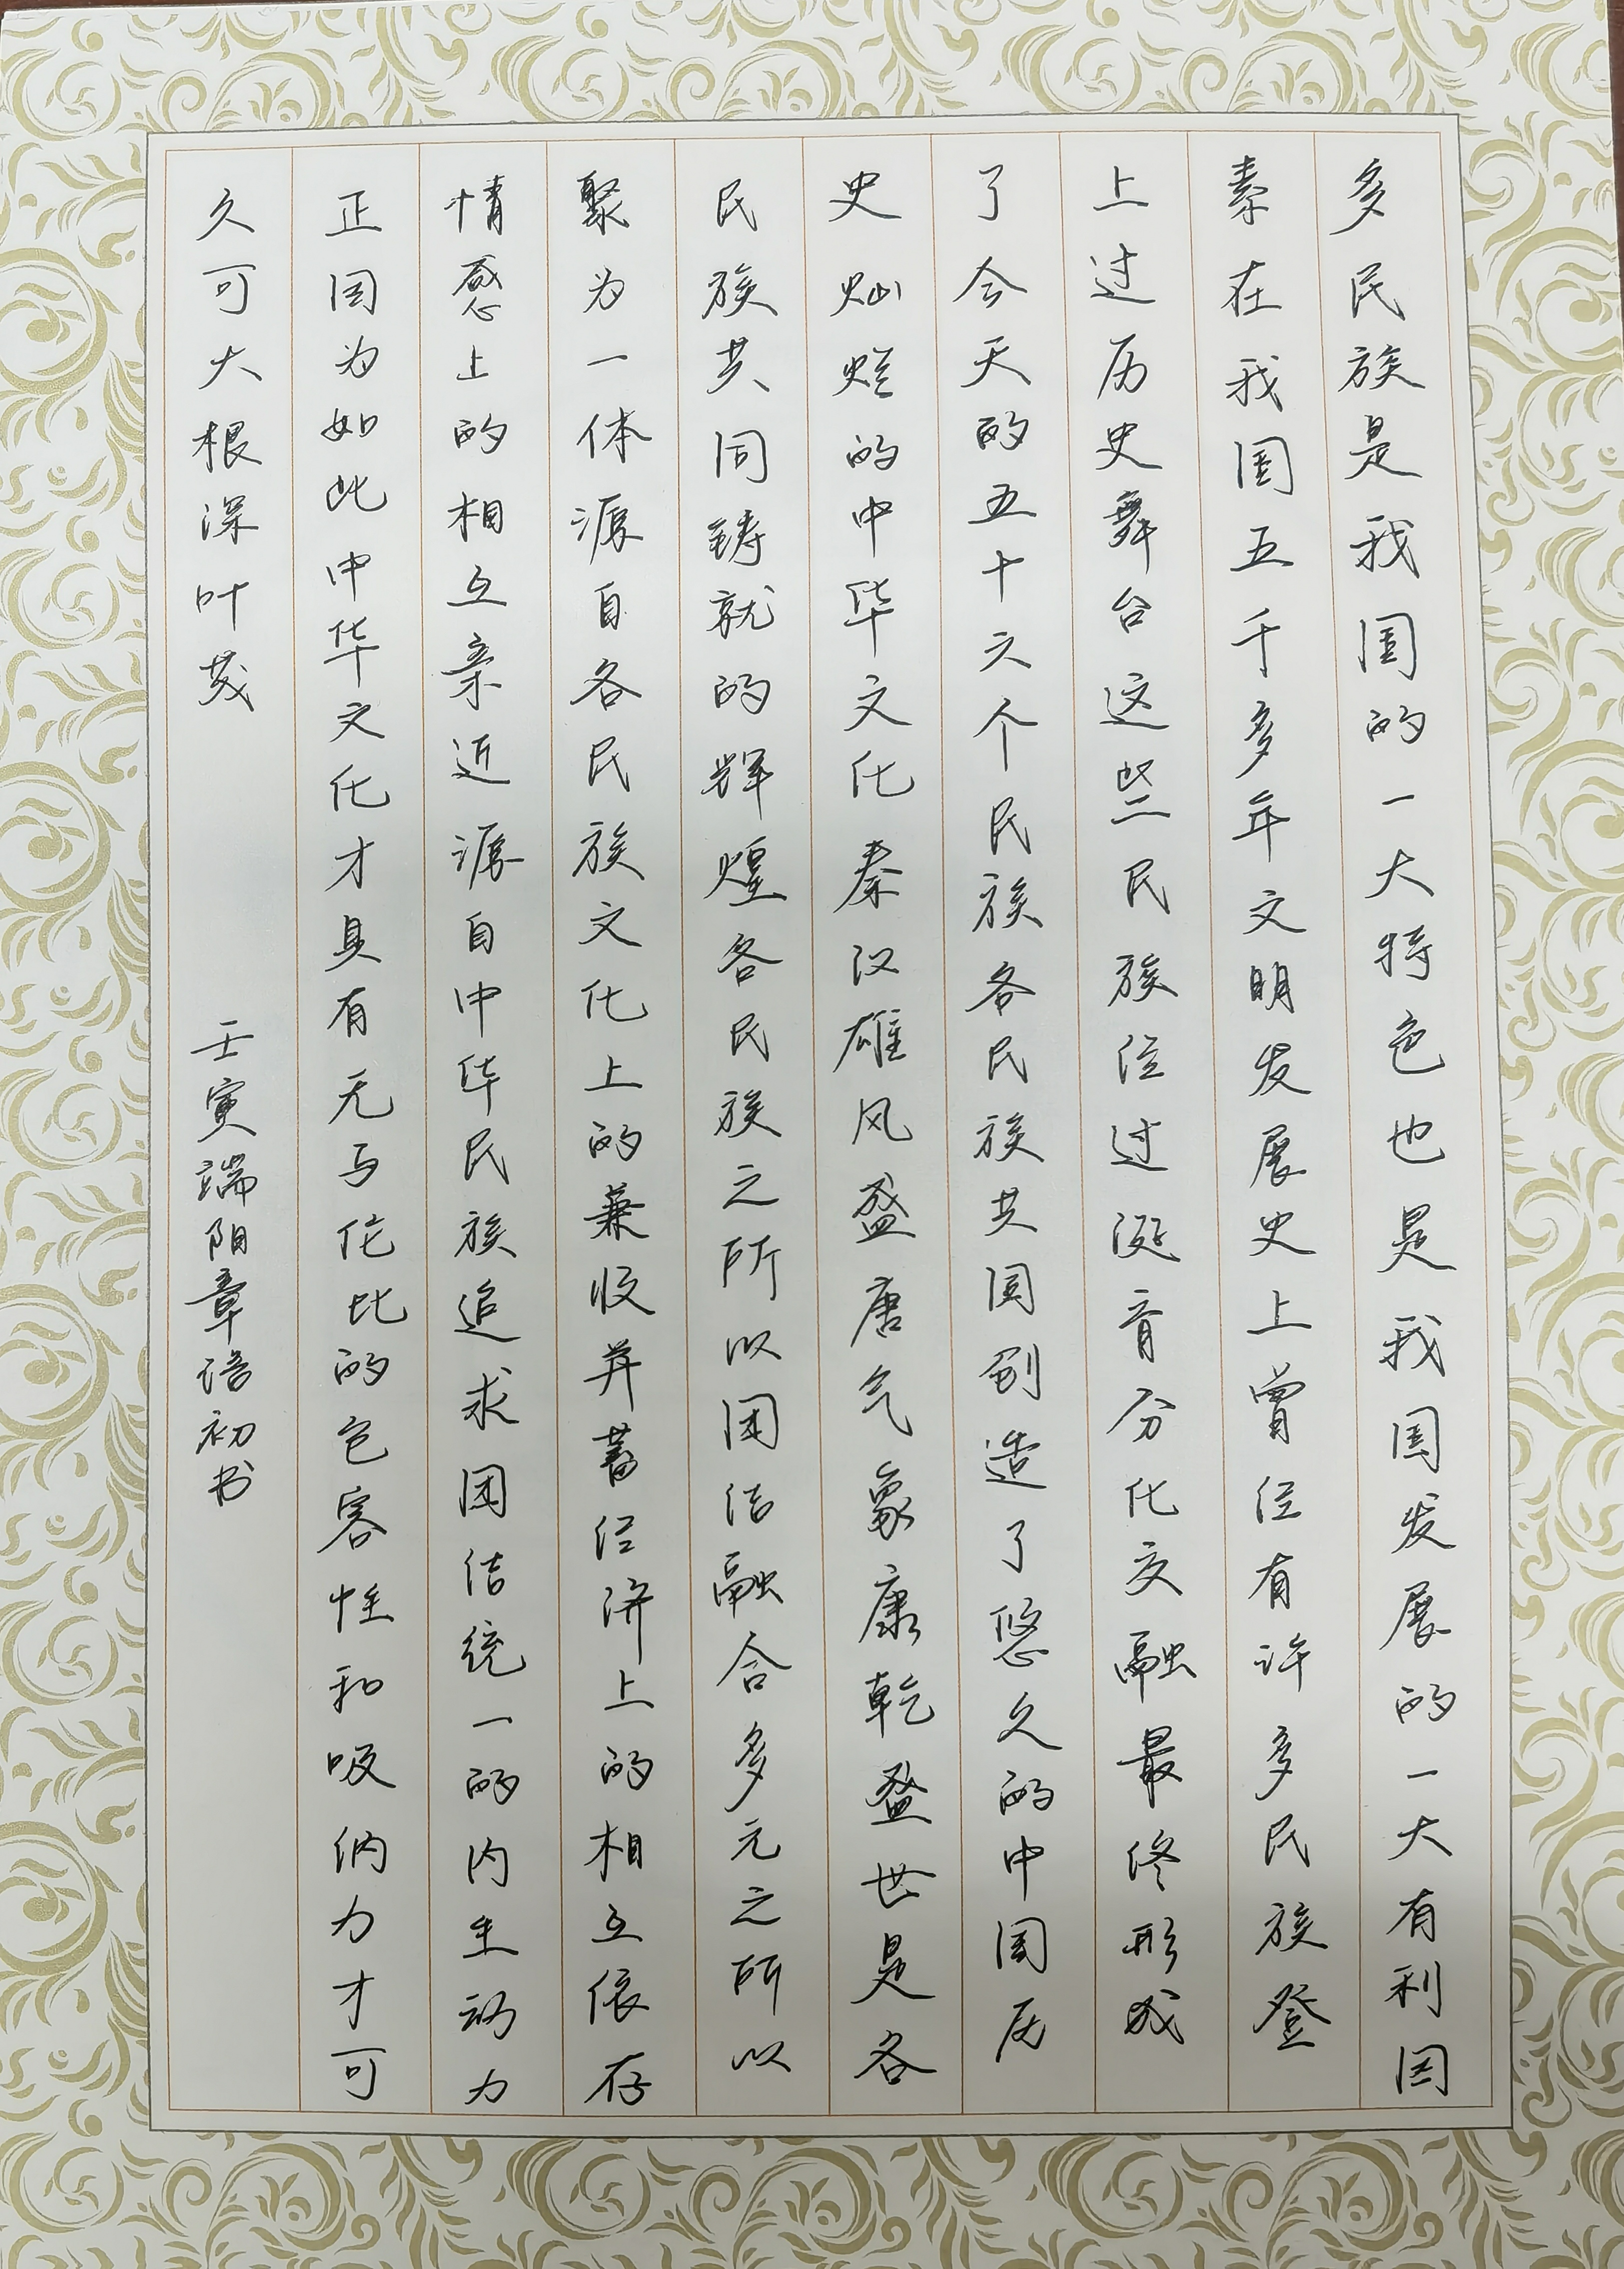 多民族是我国的一大特色也是我国发展的一大有利因
素在我国五千多年文明发展史上曾经有许多民族登
上过历史舞台这些民族经过诞育分化交融最终形成
了今天的五十六个民族各民族共同创造了悠久的中国历
史灿烂的中华文化秦汉雄风盛唐气象康乾盛世是各
民族共同铸就的辉煌各民族之所以团结融合多元之所以
聚为一体源自各民族文化上的兼收并蓄经济上的相互依存
情感上的相互亲近源自中华民族追求团结统一的内生动力
正因为如此中华文化才具有无与伦比的包容性和吸纳力才可
久可大根深叶茂
壬寅端阳章语初书